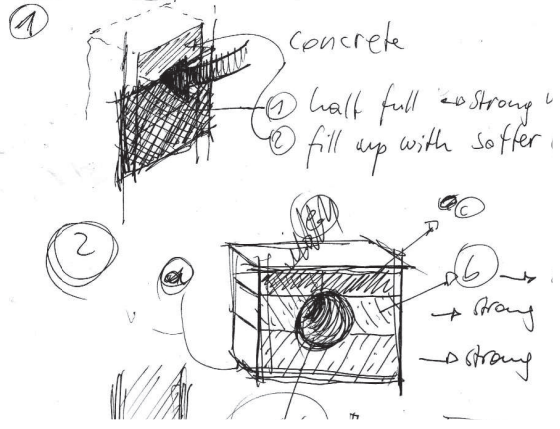 1
concrete
① half full strong
② fill up with softer
2
a
c
b →
→ strong
→ strong